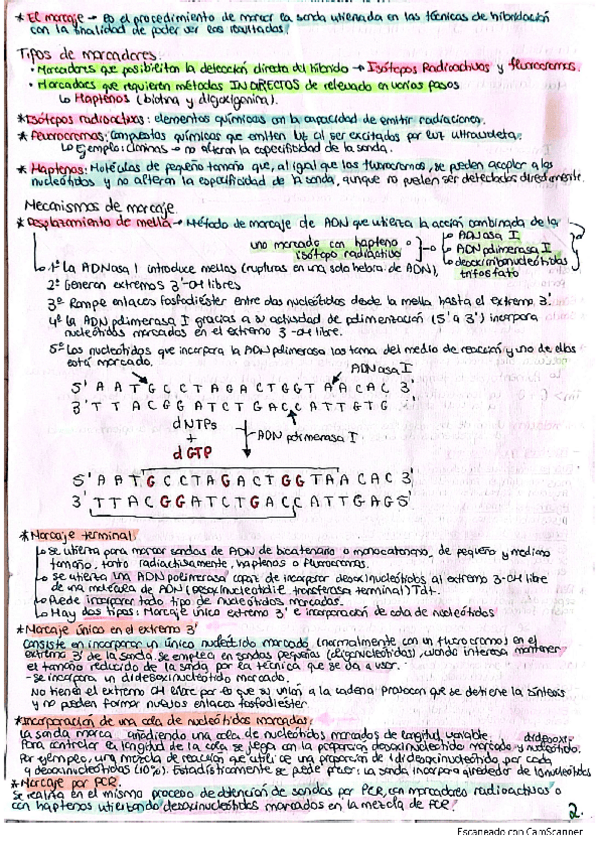 * El marcaje → Es el procedimiento de marcar la sonda utilizada en las técnicas de hibridación
con la finalidad de poder ser
Tipos de marcadores:
· Marcadores que posibilitan la detección directa del híbrido → Isótopos Radioactivos y fluorocromos.
· Marcadores que requieren métodos INDIRECTOS de revelado en varios pasos
↳ Haptenos (biotina y digoxigenina).
* Isótopos radioactivos: elementos químicos con la capacidad de emitir radiaciones.
* Fluorocromos: compuestos químicos que emiten luz al ser excitados por luz ultravioleta.
↳ Ejemplo: cianinas → no alteran la especificidad de la sonda.
* Haptenos: Moléculas de pequeño tamaño que, al igual que los fluorocromos, se pueden acoplar a los
nucleótidos y no alteran la especificidad de la sonda, aunque no puelen ser detectados directamente.
Mecanismos de marcaje
* Desplazamiento de mella → Método de marcaje de ADN que utiliza la acción combinada de la:
uno marcado con hapteno o
isótopo radiactivo
↳ ADNasa I
↳ ADN polimerasa I
↳ desoxirribonucleótidos
trifosfato
↳ 1º La ADNasa I introduce mellas (rupturas en una sola hebra de ADN),
2º Generan extremos 3'-OH libres
3º Rompe enlaces fosfodiéster entre dos nucleótidos desde la mella hasta el extremo 3'.
4º La ADN polimerasa I gracias a su actividad de polimerización (5' a 3') incorpora
nucleótidos marcados en el extremo 3'-OH libre.
5º Los nucleótidos que incorpora la ADN polimerasa los toma del medio de reacción y uno de ellos
está marcado.
ADNasa I
5' A A T G C C T A G A C T G G T A A C A C 3'
3' T T A C G G A T C T G A C C A T T G T G
dNTPs
+
dGTP
ADN polimerasa I
5' A A T G C C T A G A C T G G T A A C A C 3'
3' T T A C G G A T C T G A C C A T T G A G 5'
* Marcaje terminal
↳ se utiliza para marcar sondas de ADN de bicatenario o monocatenario, de pequeño y mediano
tamaño, tanto radiactivamente, haptenos o fluorocromos.
↳ se utiliza una ADN polimerasa capaz de incorporar desoxinucleótidos al extremo 3-OH libre
de una molécula de ADN (desoxinucleotidil transferasa terminal) TdT.
↳ Puede incorporar todo tipo de nucleótidos marcados.
↳ Hay dos tipos: Marcaje único extremo 3' e incorporación de cola de nucleótidos
* Marcaje único en el extremo 3'
Consiste en incorporar un único nucleótido marcado (normalmente con fluorocromo) en el
extremo 3' de la sonda. se emplea en sondas pequeñas (oligonucleótidos), cuando interesa mantener
el tamaño reducido de la sonda por la técnica que se va a usar.
- Se incorpora un didesoxinucleótido marcado.
No tienen el extremo OH libre por lo que su unión a la cadena provocan que se detiene la síntesis
y no pueden formar nuevos enlaces fosfodiester.
* Incorporación de una cola de nucleótidos marcados:
La sonda marca añadiendo una cola de nucleótidos marcados de longitud variable.
Para controlar la longitud de la cola se juega con la proporción desoxinucleótido marcado y didesoxi-
nucleótido.
Por ejemplo, una mezcla de reacción que utilice una proporción de 1 didesoxinucleótido por cada
9 desoxinucleótidos (10%). Estadísticamente se puede prever: la sonda incorpora alrededor de 10 nucleótidos
* Marcaje por PCR.
Se realiza en el mismo proceso de obtención de sondas por PCR, con marcadores radioactivos o
con haptenos utilizando desoxinucleótidos marcados en la mezcla de PCR.
2.
Escaneado con CamScanner